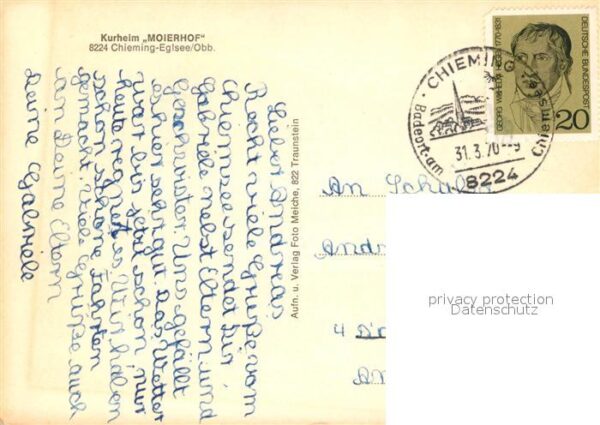 Kurheim „MOIERHOF"
8224 Chieming-Eglsee/Obb.
Lieber Andreas
Recht viele Grüße vom
Chiemsee sendet Dir
Gabriele nebst Eltern und
Geschwister. Uns gefällt
es hier sehr gut. Das Wetter
war bis jetzt schön, nur
heute regnet es. Wir haben
schon schöne Fahrten
gemacht. Viele Grüße auch
an Deine Eltern
Deine Gabriele
Aufn. u. Verlag Foto Meiche, 822 Traunstein
CHIEMING
Badeort am Chiemsee
31.3.70--9
8224
GEORG WILHELM HEGEL 1770-1831
DEUTSCHE BUNDESPOST
20
An Schüler
And
4 D
privacy protection
Datenschutz